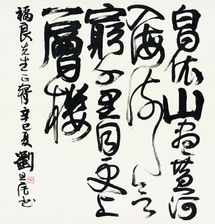 白日依山盡黃河
入海流欲
窮千里目更上
一層樓
福良先生正 辛巳夏 劉旦宅書